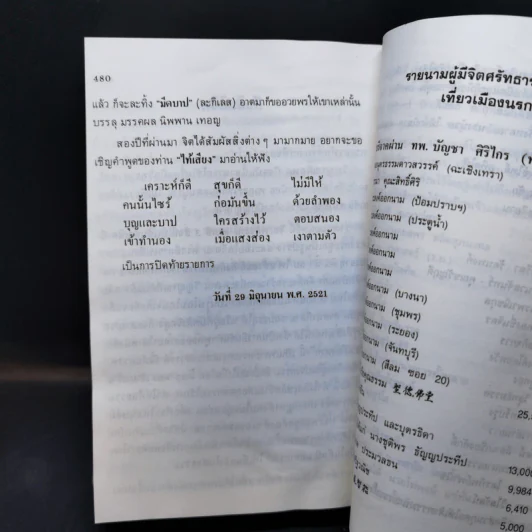 480
แล้ว ก็จะละทิ้ง "มีดบาป" (ละกิเลส) อาตมาก็ขออวยพรให้เขาเหล่านั้น
บรรลุ มรรคผล นิพพาน เทอญ
สองปีที่ผ่านมา จิตได้สัมผัสสิ่งต่าง ๆ มามากมาย อยากจะขอ
เชิญคำพูดของท่าน "ไท้เสียง" มาอ่านให้ฟัง
เคราะห์ก็ดี สุขก็ดี ไม่มีให้
คนนั้นไซร้ ก่อมันขึ้น ด้วยลำพอง
บุญและบาป ใครสร้างไว้ ตอบสนอง
เข้าทำนอง เมื่อแสงส่อง เงาตามตัว
เป็นการปิดท้ายรายการ
วันที่ 29 มิถุนายน พ.ศ. 2521
รายนามผู้มีจิตศรัทธา
เที่ยวเมืองนรก
ผ่าน ทพ. บัญชา ศิริไกร
ธรรมดาวสวรรค์ (ฉะเชิงเทรา)
คุณะสิทธิ์ศิริ
ออกนาม (ป้อมปราบฯ)
ออกนาม (ประตูน้ำ)
ออกนาม
ออกนาม
ออกนาม
ออกนาม (บางนา)
ออกนาม (ชุมพร)
ออกนาม (ระยอง)
ออกนาม (จันทบุรี)
ออกนาม (สีลม ซอย 20)
聖德佛堂
25,
และบุตรธิดา
นางชุติพร ธัญญประทีป
ประมวลชน 13,000
9,984
6,410
5,000